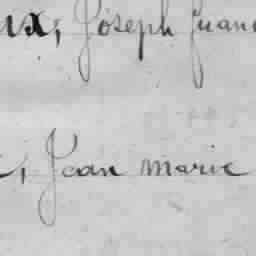 ux, Joseph Juan
, Jean Marie